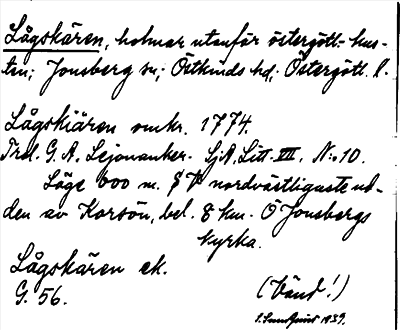 Lågskären, holmar utanför östergötl.- kus-
ten; Jonsberg sn; Östkinds hd; Östergötl. l.
Lågskiären omkr. 1774.
Trol. G. A. Lejonanker. SjA, Litt. VII. N:o 10.
Läge 600 m. S V nordvästligaste ud-
den av Korsön, bel. 8 km. Ö Jonsbergs
kyrka.
Lågskären ek.
G. 56.
(Vänd!)
1939.